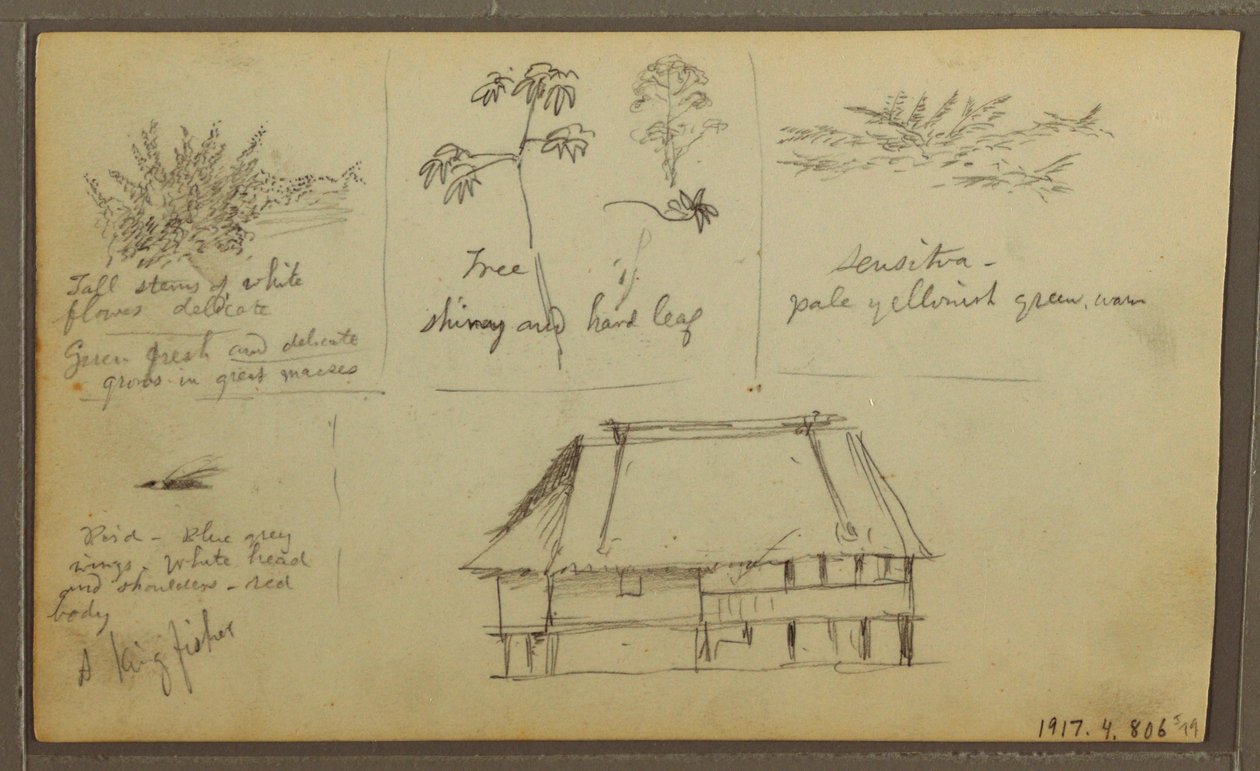 Tall stems of white
flowers delicate
Green fresh and delicate
grows in great masses
Tree
shiney and hard leaf
sensitva -
pale yellowish green, warm
Bird - Blue grey
wings - White head
and shoulders - red
body
A Kingfisher
1917.4.806